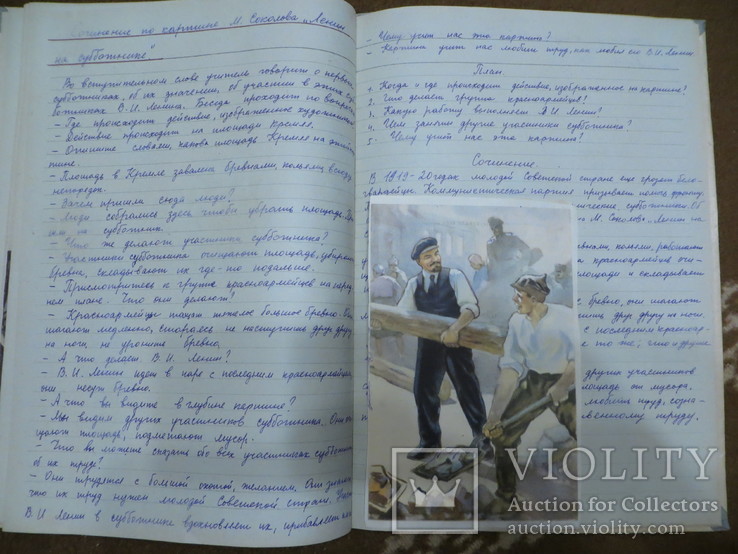 Сочинение по картине М. Соколова „Ленин
на субботнике"
Во вступительном слове учитель говорит о первых
субботниках, об их значении, об участии в этих суб-
ботниках В.И. Ленина. Беседа проходит по вопросам:
- Где происходит действие, изображенное художником?
- Действие происходит на площади Кремля.
- Опишите словами, какова площадь Кремля на этой кар-
тине.
- Площадь в Кремле завалена бревнами, кольями, всюду
непорядок.
- Зачем пришли сюда люди?
- Люди собрались здесь чтобы убрать площадь.
на субботник.
- Что же делают участники субботника?
- Участники субботника очищают площадь, убирают
бревна, складывают их где-то подальше.
- Присмотритесь к группе красноармейцев на перед-
нем плане. Что они делают?
- Красноармейцы тащат тяжелое большое бревно. Они
шагают медленно, стараясь не наступить друг другу
на ноги, не уронить бревно.
- А что делает В.И. Ленин?
- В.И. Ленин идет в паре с последним красноармейцем,
несут бревно.
- А что вы видите в глубине картины?
- Мы видим других участников субботника. Они
площадь, подметают мусор.
- Что вы можете сказать обо всех участниках субботника,
об их труде?
- Они трудятся с большой охотой, желанием. Они знают,
что их труд нужен молодой Советской стране. Участие
В.И. Ленин в субботнике вдохновляет их, прибавляет
- Чему учит нас эта картина?
- Картина учит нас любить труд, как любил его В.И. Ленин
План
1. Когда и где происходит действие, изображенное на картине?
2. Что делает группа красноармейцев?
3. Какую работу выполняет В.И Ленин?
4. Чем заняты другие участники субботника?
5. Чему учит нас эта картина?
Сочинение.
В 1919-20 годах молодой Советской стране еще грозят бело-
гвардейцы. Коммунистическая партия призывает помочь фронту.
субботники. Об
М. Соколов „Ленин на
бревнами, кольями, работают
красноармейцев очи-
площади и складывает
бревно, они шагают
друг другу на ноги.
с последним красноар-
то же, что и другие
других участников
площадь от мусора.
любить труд, созна-
труду.
VIOLITY
Auction for Collectors
auction.violity.com